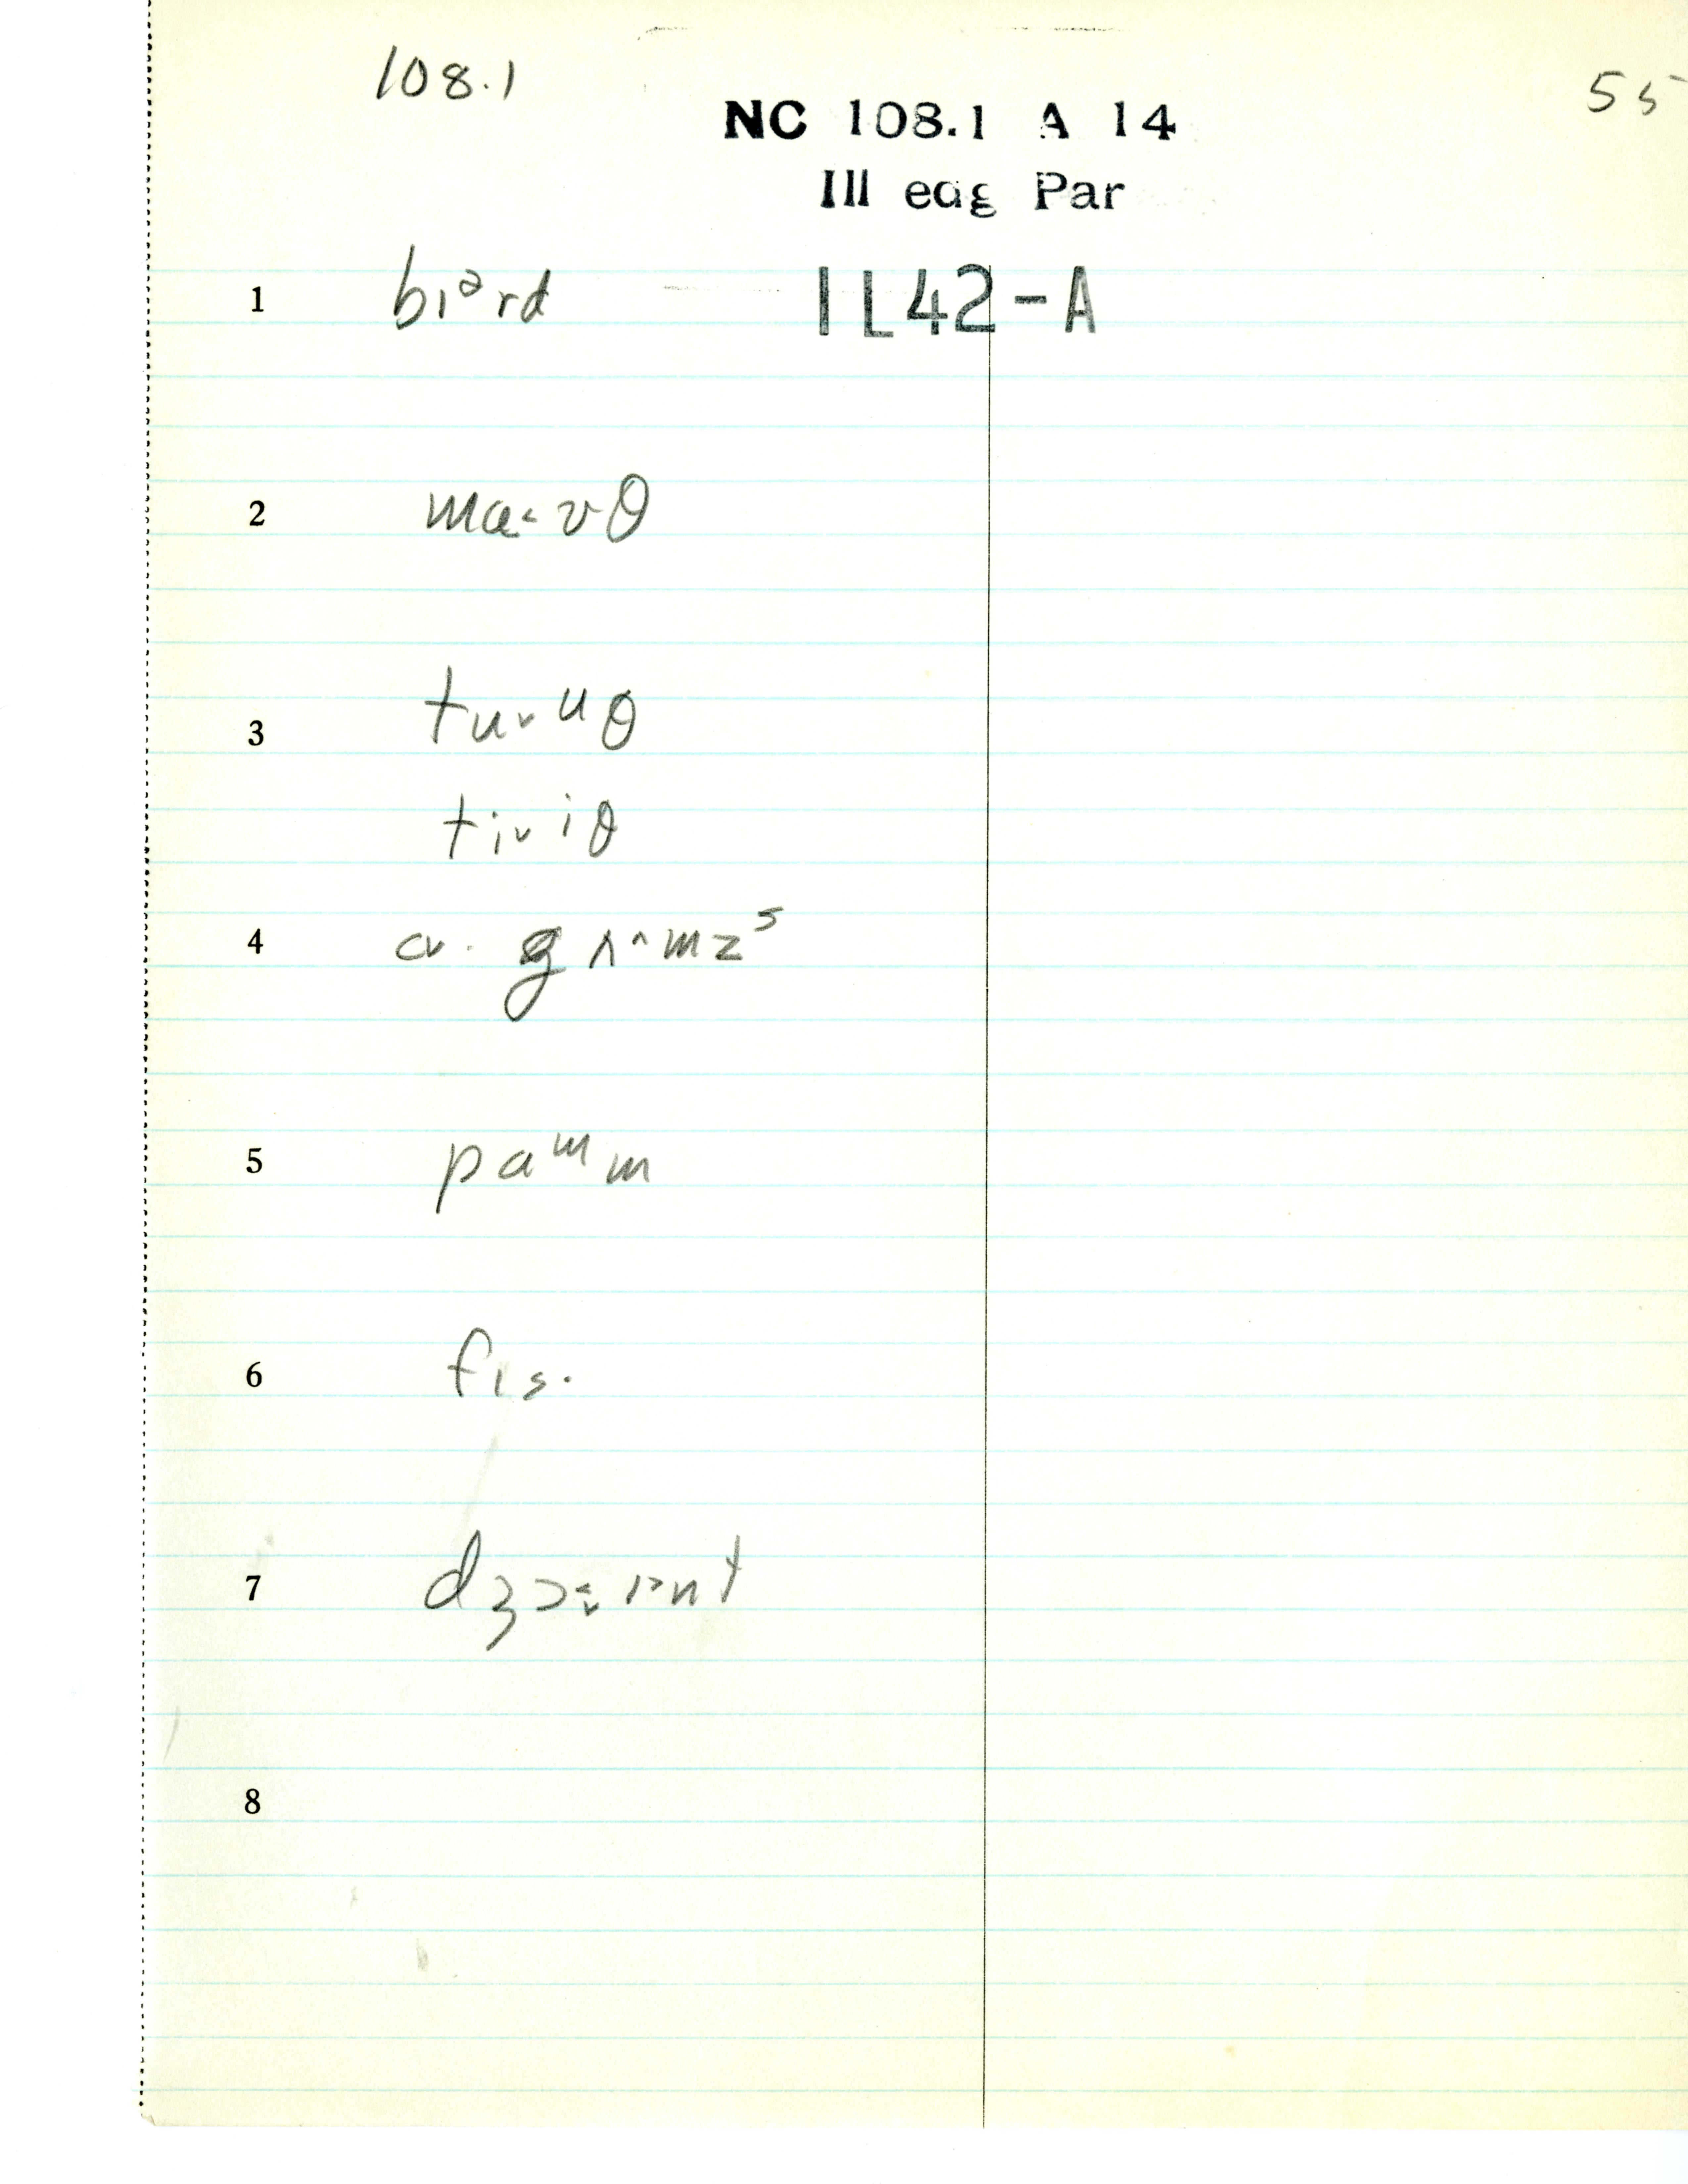 108.1
55
NC 108.1 A 14
Ill edg Par
1 bɪᵊrd
IL42-A
2 ma˂vθ
3 tu˅ᵘθ
ti˅ⁱθ
4 ɑ· gʌ^mzˢ
5 paᵐm
6 fɪs·
7 dʒɔ˂˅ɪᵊnt
8